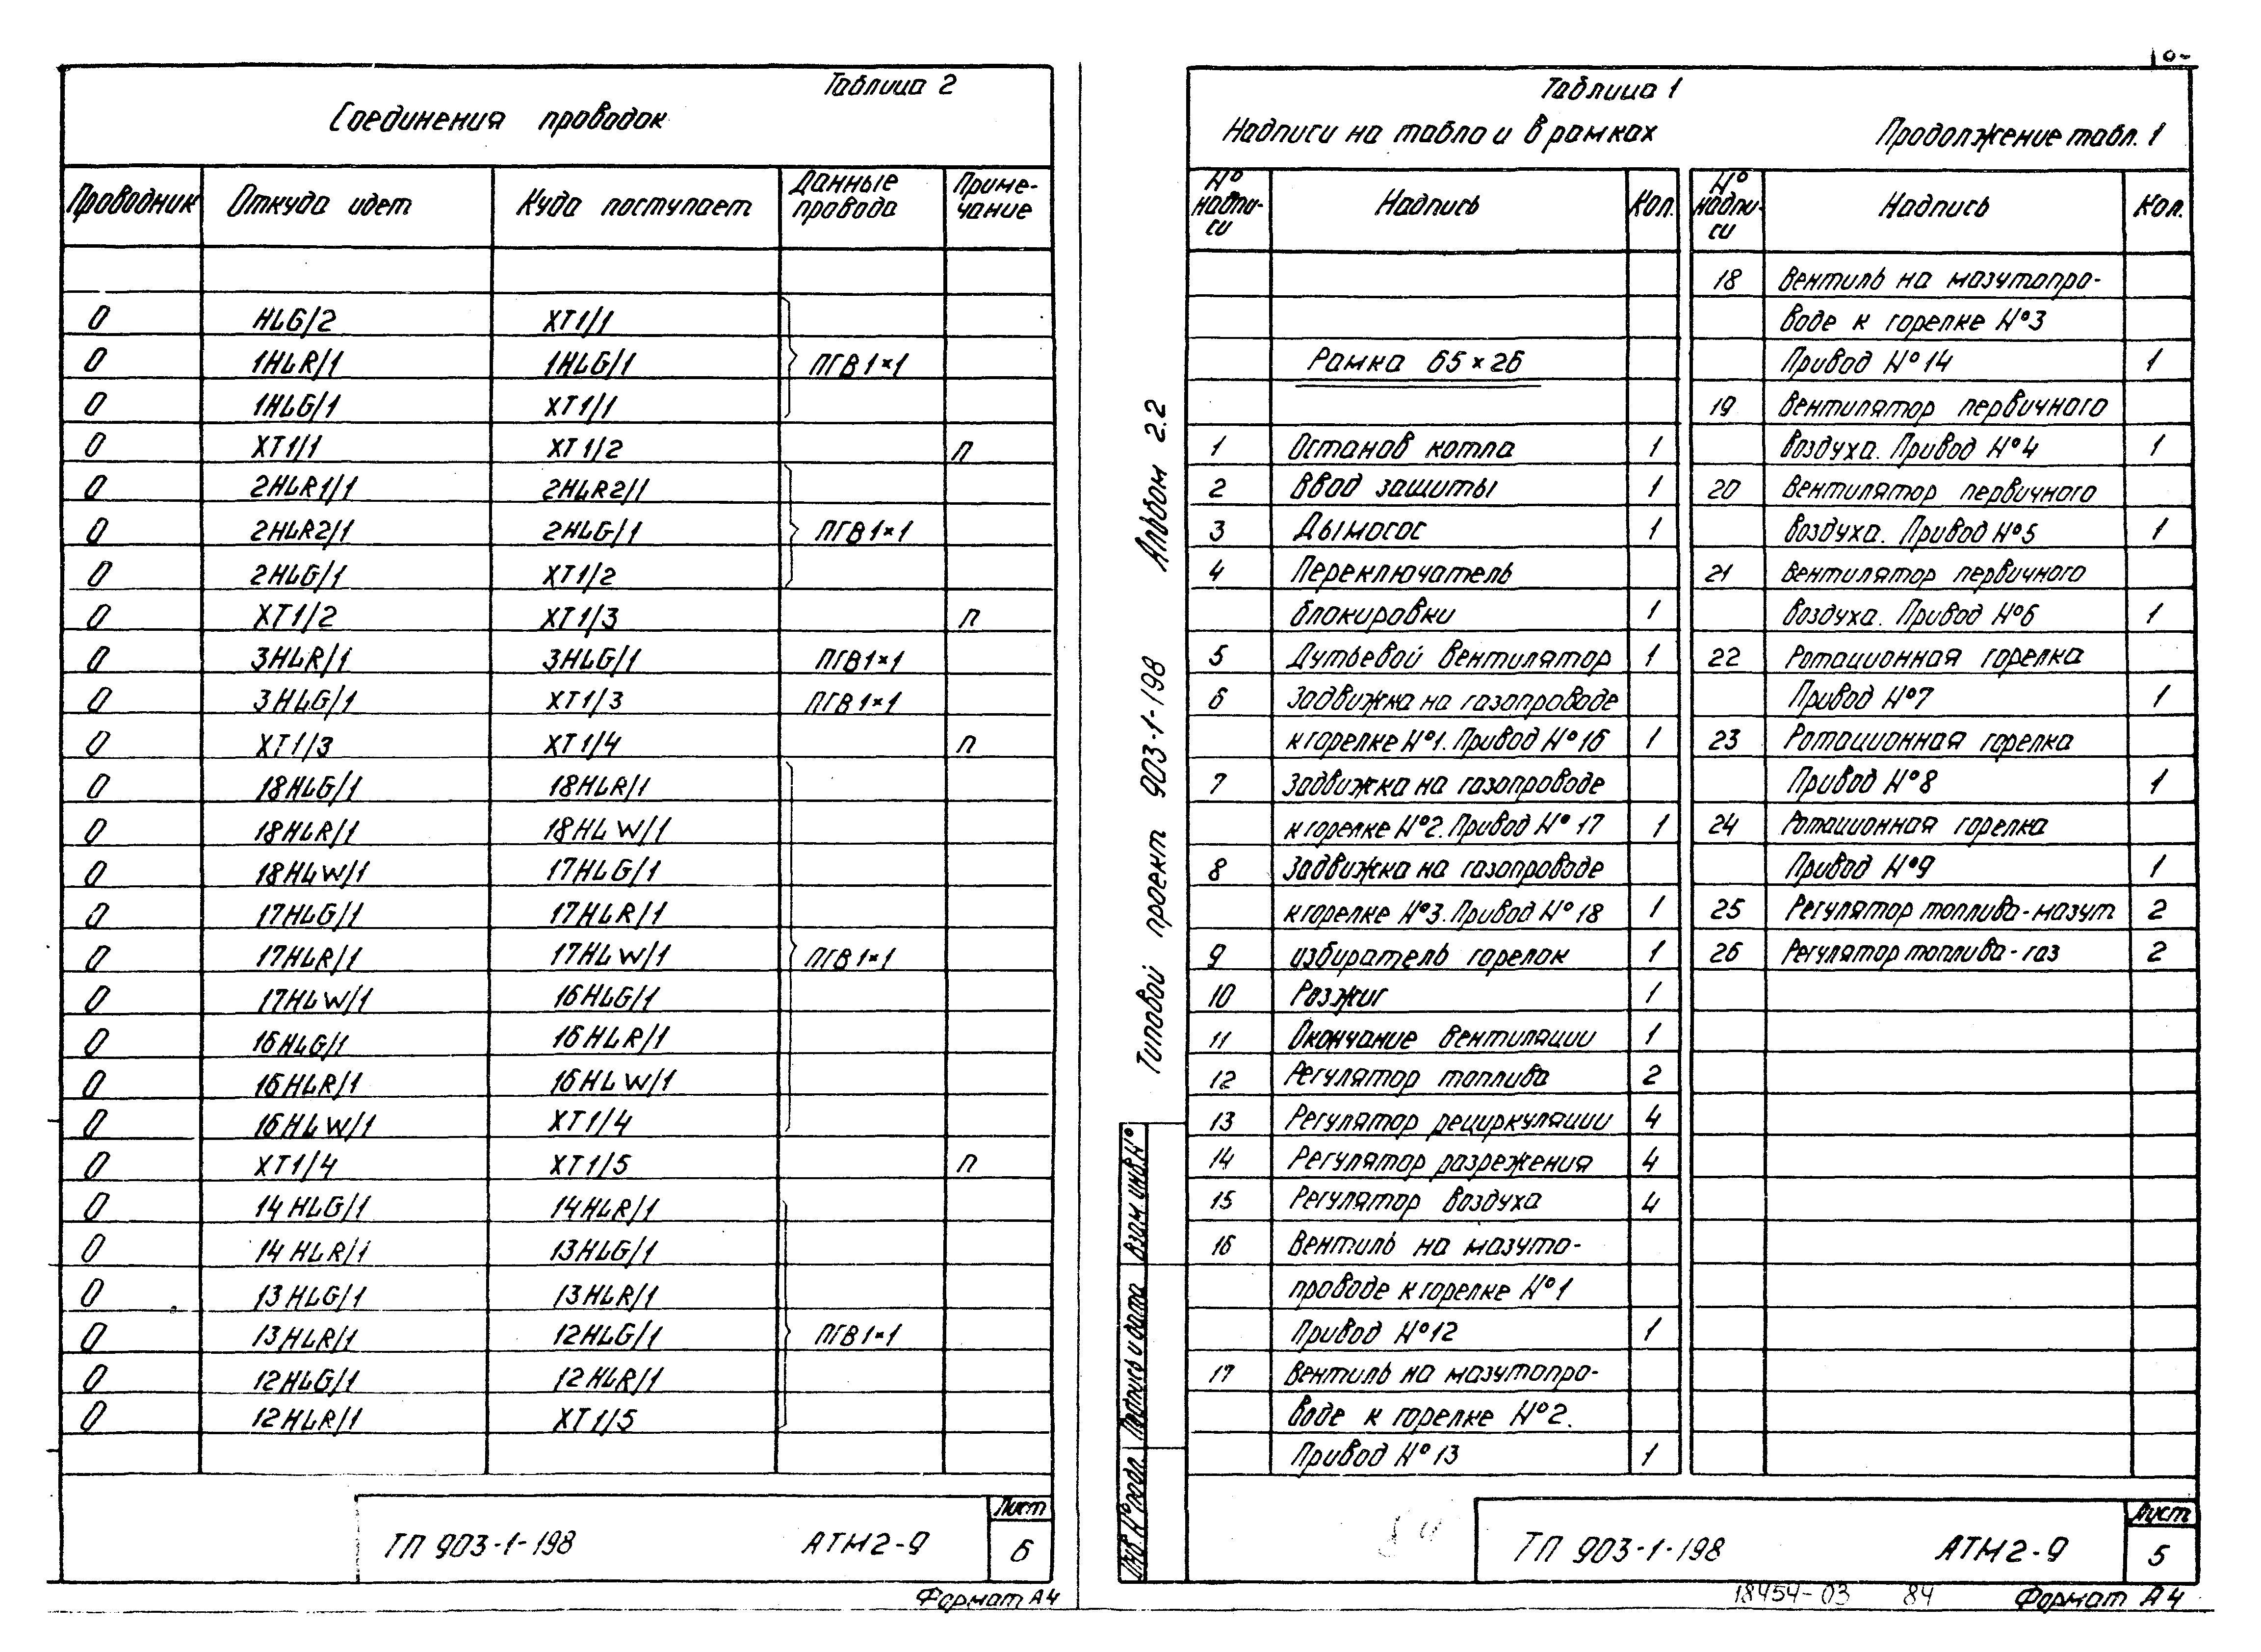 Таблица 2
Соединения проводок
Проводник Откуда идет Куда поступает Данные провода Приме-чание
0 HLG/2 XT1/1
0 1HLR/1 1HLG/1 ПГВ1×1
0 1HLG/1 XT1/1
0 XT1/1 XT1/2 п
0 2HLR1/1 2HLR2/1
0 2HLR2/1 2HLG/1 ПГВ1×1
0 2HLG/1 XT1/2
0 XT1/2 XT1/3 п
0 3HLR/1 3HLG/1 ПГВ1×1
0 3HLG/1 XT1/3 ПГВ1×1
0 XT1/3 XT1/4 п
0 18HLG/1 18HLR/1
0 18HLR/1 18HLW/1
0 18HLW/1 17HLG/1
0 17HLG/1 17HLR/1
0 17HLR/1 17HLW/1 ПГВ1×1
0 17HLW/1 16HLG/1
0 16HLG/1 16HLR/1
0 16HLR/1 16HLW/1
0 16HLW/1 XT1/4
0 XT1/4 XT1/5 п
0 14HLG/1 14HLR/1
0 14HLR/1 13HLG/1
0 13HLG/1 13HLR/1
0 13HLR/1 12HLG/1 ПГВ1×1
0 12HLG/1 12HLR/1
0 12HLR/1 XT1/5
ТП 903-1-198 АТМ2-9 Лист 6
Формат А4
Альбом 2.2
Типовой проект 903-1-198
Взам. инв. №
Подпись и дата
Инв. № подл.
Таблица 1
Надписи на табло и в рамках
Продолжение табл. 1
№ надпи-си Надпись Кол.
Рамка 65×26
1 Останов котла 1
2 Ввод защиты 1
3 Дымосос 1
4 Переключатель
блокировки 1
5 Дутьевой вентилятор 1
6 Задвижка на газопроводе
к горелке №1. Привод №16 1
7 Задвижка на газопроводе
к горелке №2. Привод №17 1
8 Задвижка на газопроводе
к горелке №3. Привод №18 1
9 избиратель горелок 1
10 Розжиг 1
11 Окончание вентиляции 1
12 Регулятор топлива 2
13 Регулятор рециркуляции 4
14 Регулятор разрежения 4
15 Регулятор воздуха 4
16 Вентиль на мазуто-
проводе к горелке №1
Привод №12 1
17 Вентиль на мазутопро-
воде к горелке №2.
Привод №13 1
№ надпи-си Надпись Кол.
18 Вентиль на мазутопро-
воде к горелке №3
Привод №14 1
19 Вентилятор первичного
воздуха. Привод №4 1
20 Вентилятор первичного
воздуха. Привод №5 1
21 Вентилятор первичного
воздуха. Привод №6 1
22 Ротационная горелка
Привод №7 1
23 Ротационная горелка
Привод №8 1
24 Ротационная горелка
Привод №9 1
25 Регулятор топлива-мазут 2
26 Регулятор топлива-газ 2
ТП 903-1-198 АТМ2-9 Лист 5
18454-03 84 Формат А4